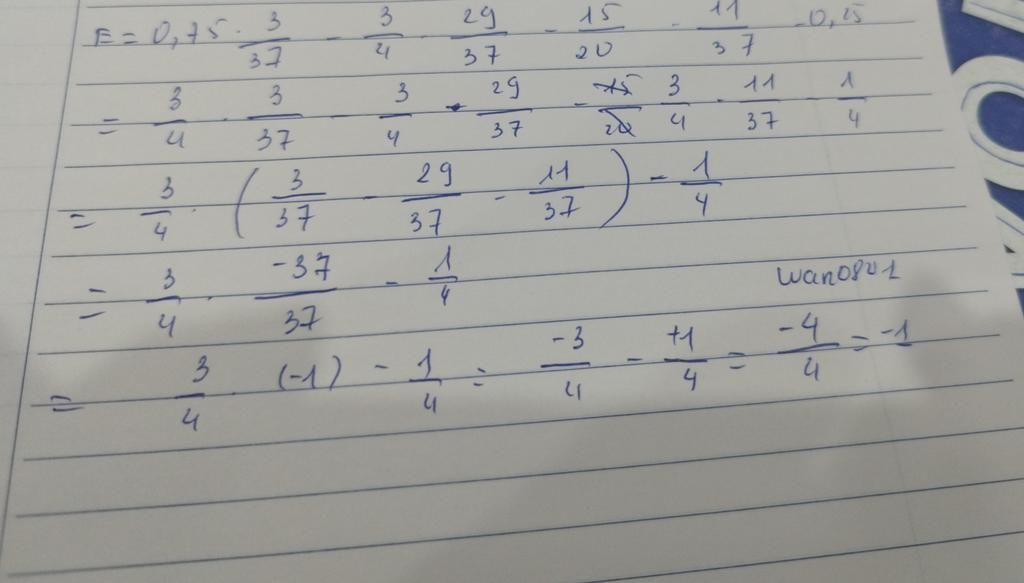 E = 0,75 · 3/37 - 3/4 · 29/37 - 15/20 · 11/37 - 0,25
= 3/4 · 3/37 - 3/4 · 29/37 - 15/20 3/4 · 11/37 - 1/4
= 3/4 · (3/37 - 29/37 - 11/37) - 1/4
= 3/4 · -37/37 - 1/4
wan0801
= 3/4 · (-1) - 1/4 = -3/4 - +1/4 = -4/4 = -1